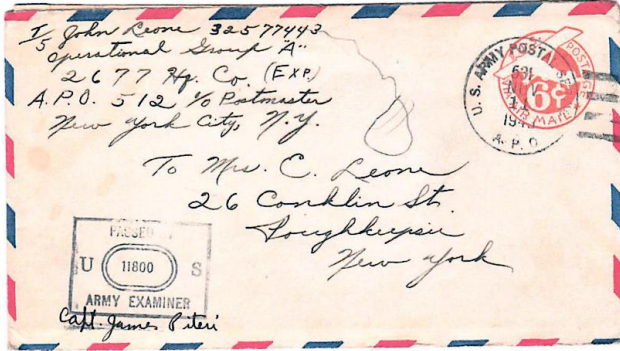 T/5 John Leone 32577443
Operational Group "A"
2677 Hq. Co. (Exp.)
A.P.O. 512 c/o Postmaster
New York City, N.Y.
U.S. ARMY POSTAL
A.P.O.
POSTAGE
6¢
VIA AIR MAIL
To Mrs. C. Leone
26 Conklin St.
Poughkeepsie
New York
PASSED BY
U 11800 S
ARMY EXAMINER
Capt. James Piteri